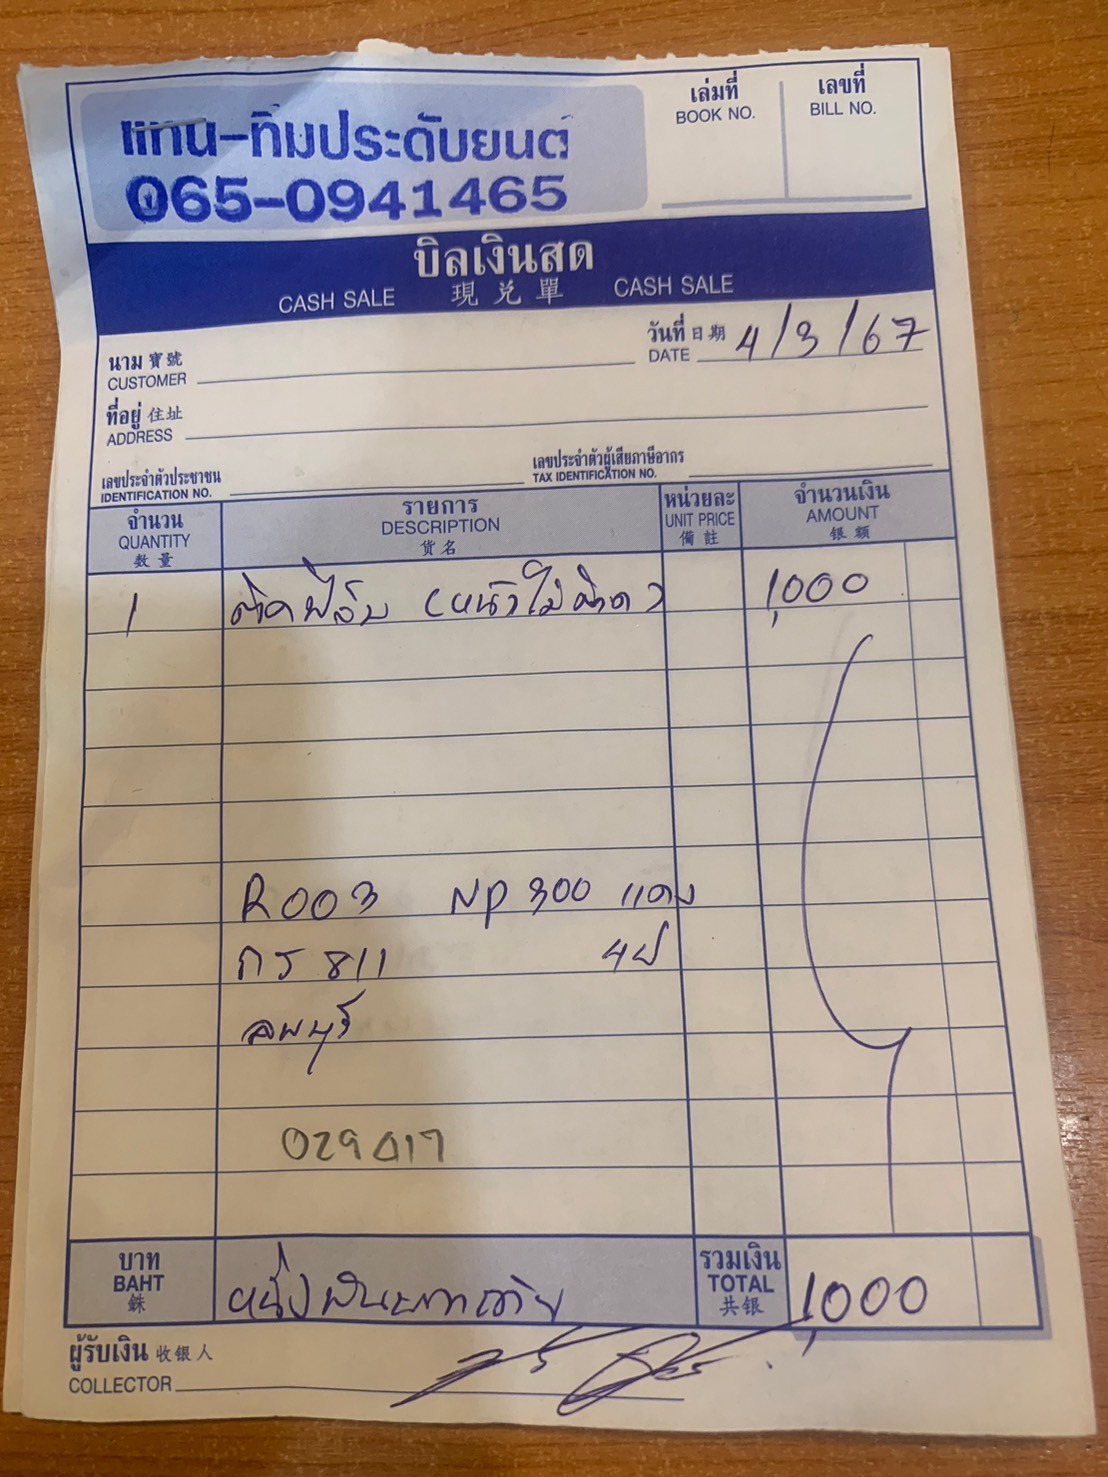 แทน-ทิมประดับยนต์
065-0941465
เล่มที่
BOOK NO.
เลขที่
BILL NO.
บิลเงินสด
CASH SALE 現兑單 CASH SALE
นาม 寶號
CUSTOMER
วันที่ 日期
DATE 4/3/67
ที่อยู่ 住址
ADDRESS
เลขประจำตัวประชาชน
IDENTIFICATION NO.
เลขประจำตัวผู้เสียภาษีอากร
TAX IDENTIFICATION NO.
จำนวน
QUANTITY
数量
รายการ
DESCRIPTION
货名
หน่วยละ
UNIT PRICE
備註
จำนวนเงิน
AMOUNT
银额
1 ติดฟิล์ม (หน้าไม่ติด) 1,000
R003 NP 300 แดง
กร 811 4ป
ลพบุรี
029017
บาท
BAHT
銖
หนึ่งพันบาทถ้วน
รวมเงิน
TOTAL
共银
1,000
ผู้รับเงิน 收银人
COLLECTOR